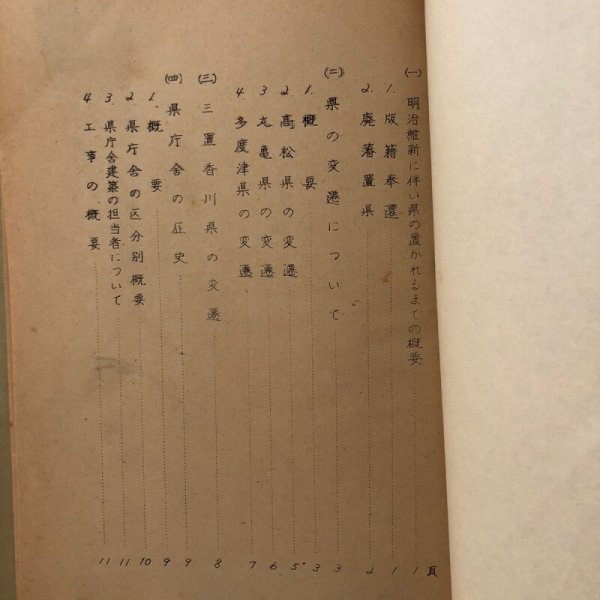 (一) 明治維新に伴い県の置かれるまでの概要 1頁
1. 版籍奉還 1
2. 廃藩置県 2
(二) 県の変遷について 3
1. 概要 3
2. 高松県の変遷 5
3 丸亀県の変遷 6
4. 多度津県の変遷 7
(三) 三置香川県の変遷 8
(四) 県庁舎の歴史 9
1. 概要 9
2. 県庁舎の区分別概要 10
3. 県庁舎建築の担当者について 11
4 工事の概要 11